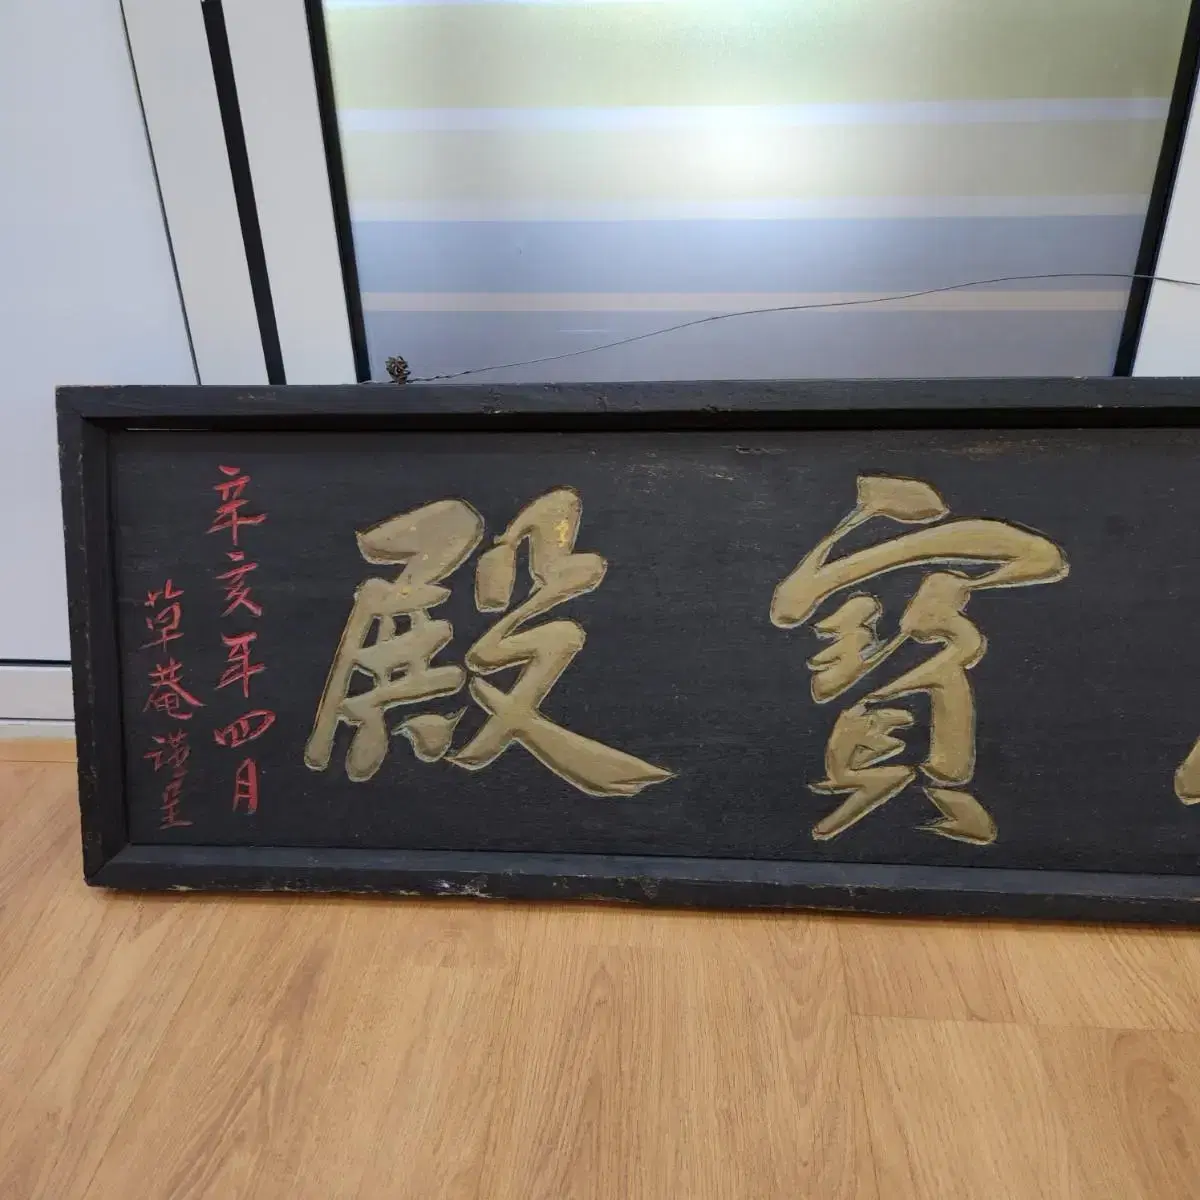 寶殿
辛亥年四月
草菴謹呈